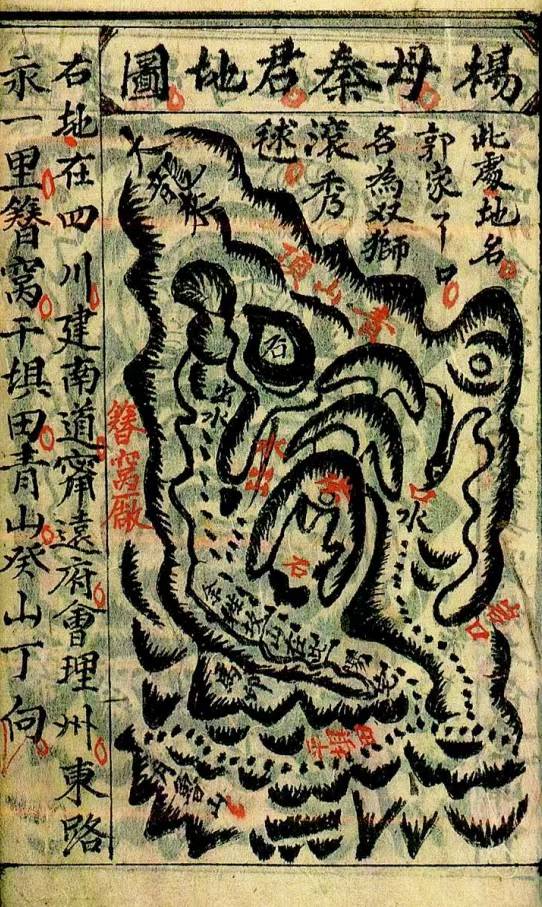 楊母秦君地圖
此處地名
郭家丫口
名為双獅
滾秀
毬
青山頂
石
出水
簪窩廠
水口
干埧田
右地在四川建南道甯遠府會理州東路
永一里簪窩干埧田青山癸山丁向